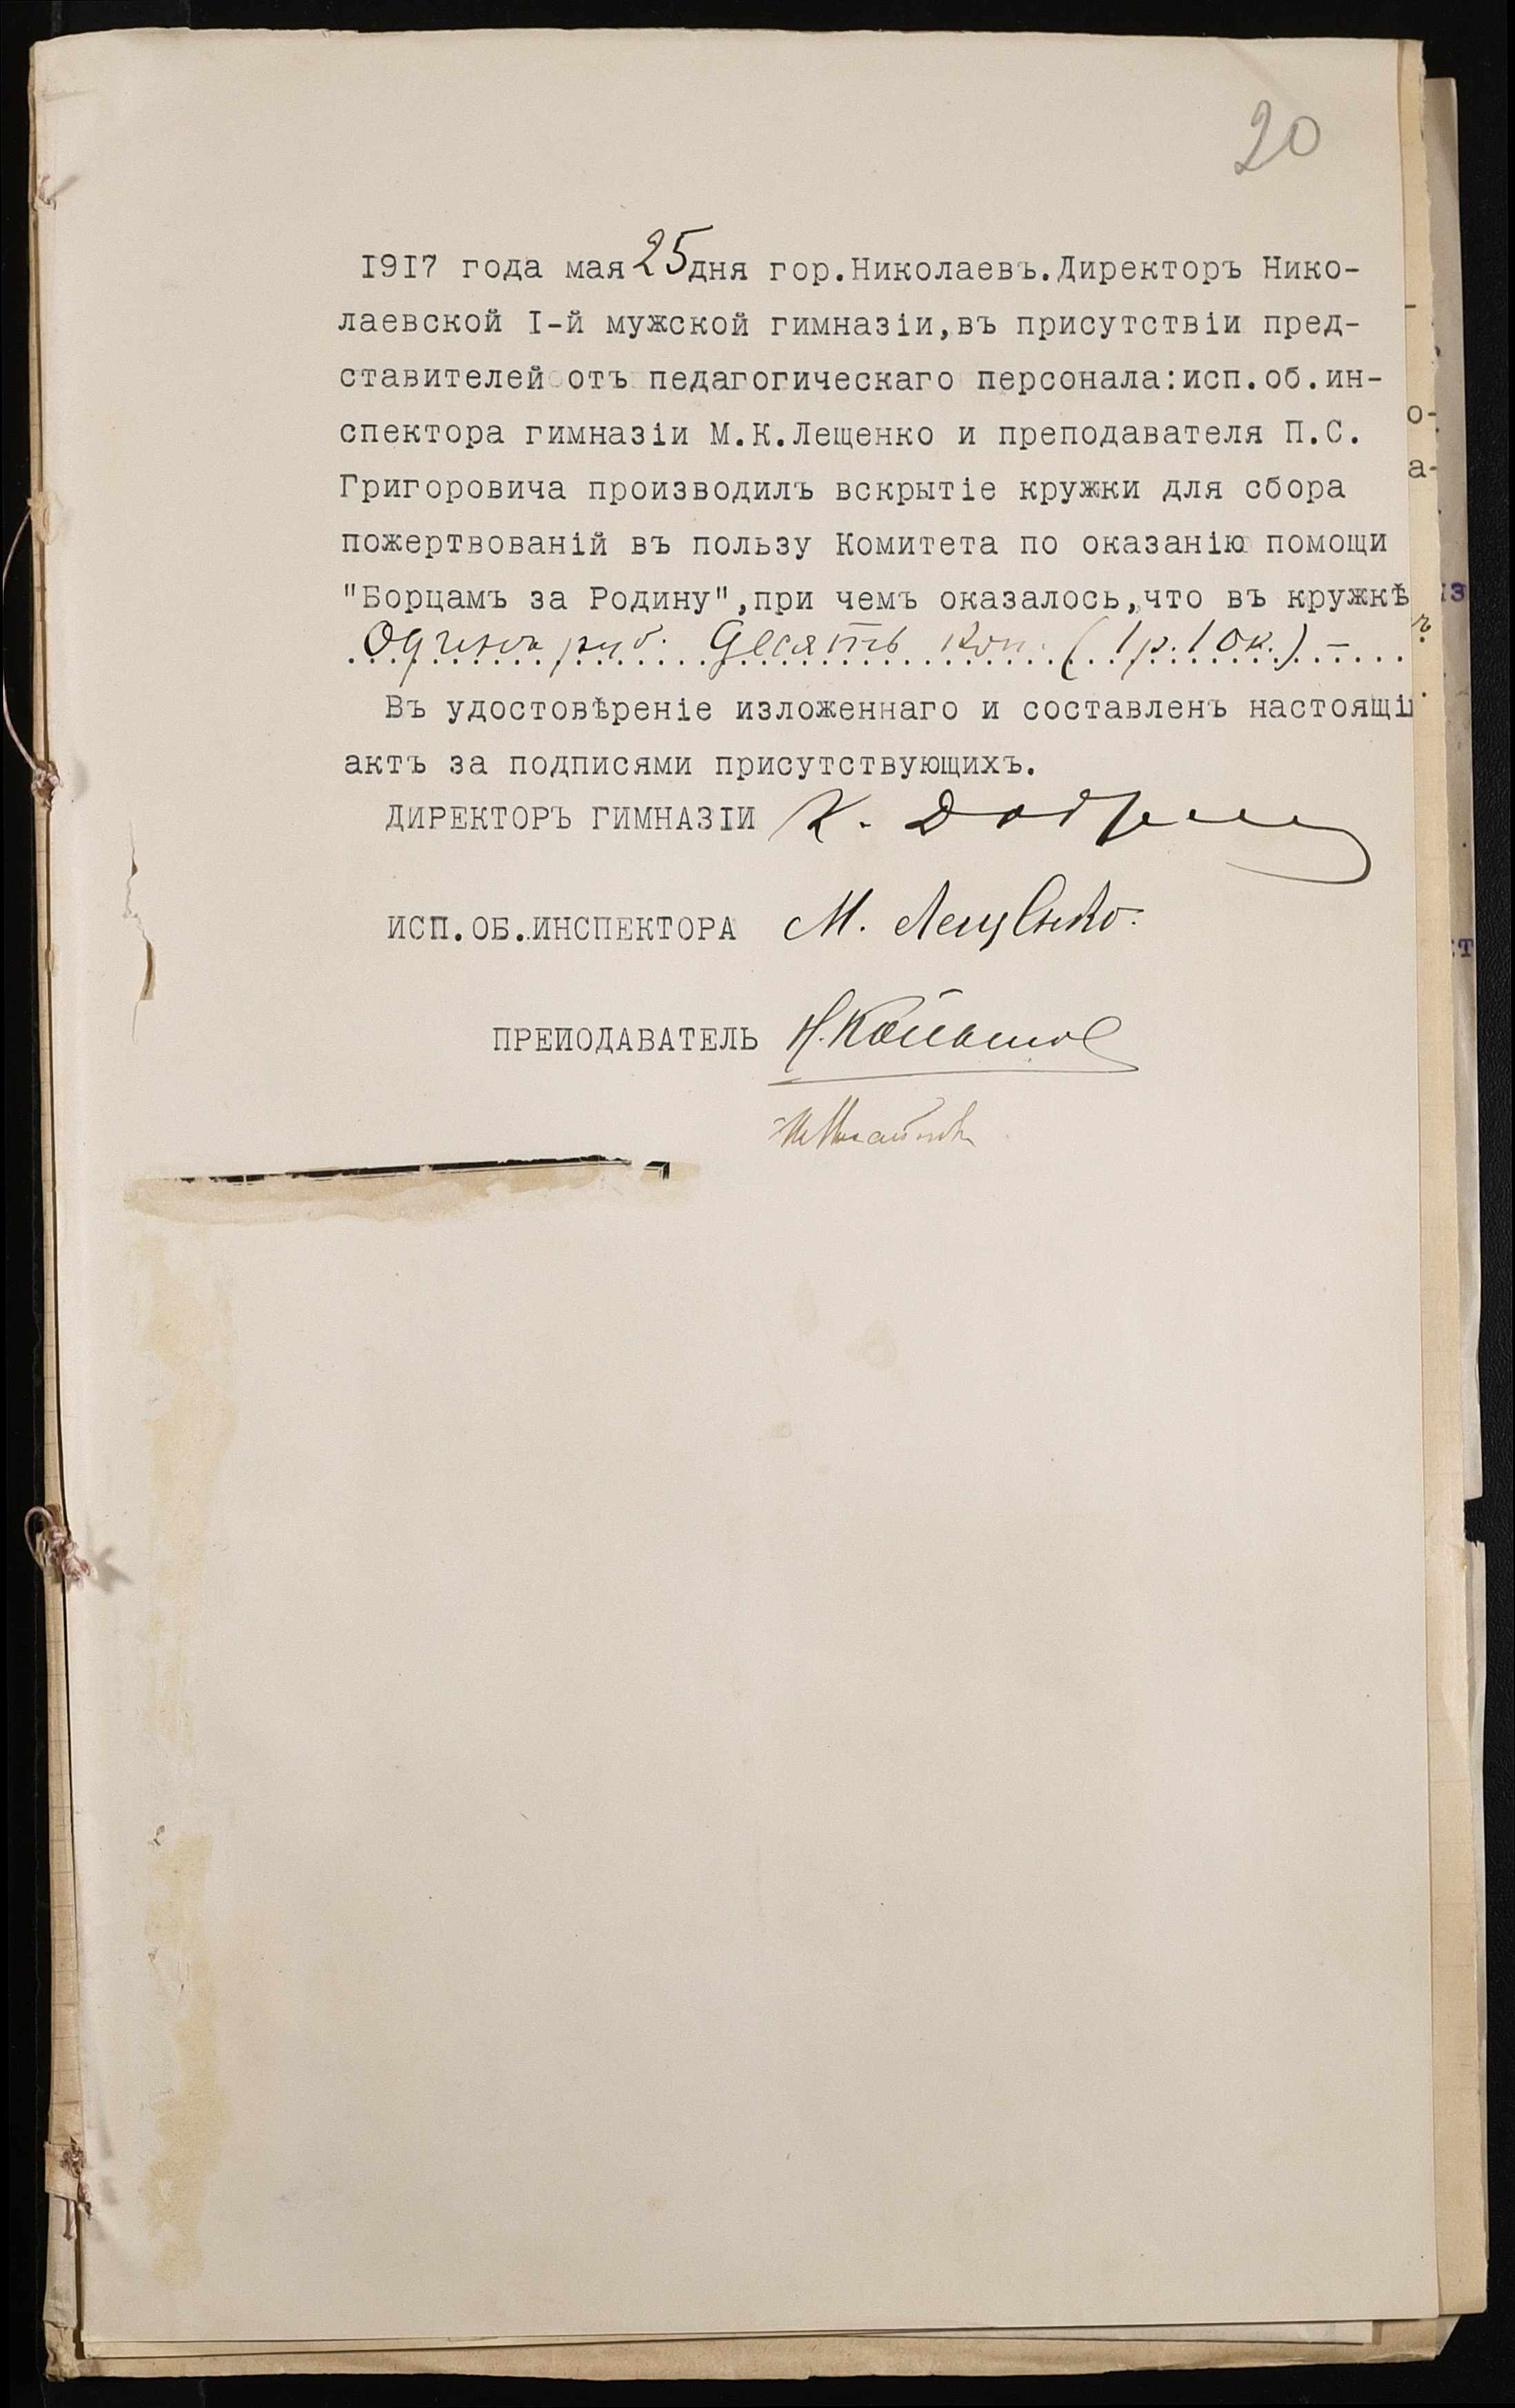 20
1917 года мая 25 дня гор.Николаевъ.Директоръ Нико-
лаевской I-й мужской гимназіи,въ присутствіи пред-
ставителей отъ педагогическаго персонала:исп.об.ин-
спектора гимназіи М.К.Лещенко и преподавателя П.С.
Григоровича производилъ вскрытіе кружки для сбора
пожертвованій въ пользу Комитета по оказанію помощи
"Борцамъ за Родину",при чемъ оказалось,что въ кружкѣ
Одинъ руб. Десять коп. (1р.10к.) –
Въ удостовѣреніе изложеннаго и составленъ настоящі
актъ за подписями присутствующихъ.
ДИРЕКТОРЪ ГИМНАЗІИ
ИСП.ОБ.ИНСПЕКТОРА М. Лещенко.
ПРЕПОДАВАТЕЛЬ